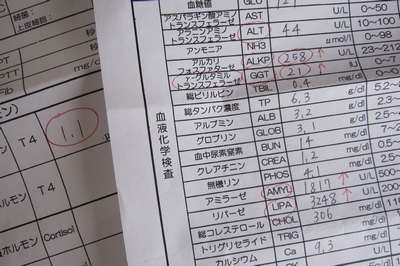 血糖値 GLU
アスパラギン酸アミノトランスフェラーゼ AST U/L 0~50
アラニンアミノトランスフェラーゼ ALT 44 U/L 10~100
アンモニア NH3 μmol/l 0~98
アルカリフォスファターゼ ALKP 258↑ U/L 23~212
γ-グルタミルトランスフェラーゼ GGT 21?↑ IU 0~
総ビリルビン TBIL 0.4 mg/dl
総タンパク濃度 TP 6.3 g/dl 5.2~
アルブミン ALB 3.2 g/dl 2.
グロブリン GLOB 3.1 g/dl 2.
血中尿素窒素 BUN 14 mg/dl 7~
クレアチニン CREA 1.2 mg/dl
無機リン PHOS 4.1 mg/dl
アミラーゼ AMYL 1817↑ U/L 500~
リパーゼ LIPA 3248↑ U/L 200
総コレステロール CHOL 306 mg/dl 110
トリグリセライド TRIG mg/dl
カルシウム Ca 9.3 mg/dl
血液化学検査
細菌:
上皮細胞:
秒
秒
PTT
mg/dl
T4 1.1
T4
Cortisol